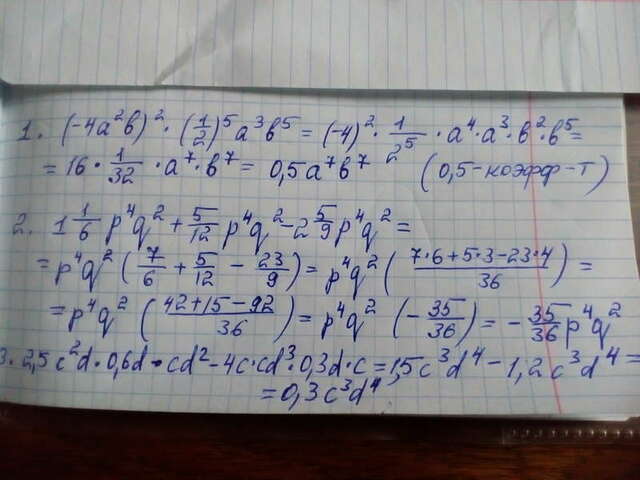 1. (-4a²b)² · (1/2)⁵ a³b⁵ = (-4)² · 1/2⁵ · a⁴ · a³ · b² · b⁵ =
= 16 · 1/32 · a⁷ · b⁷ = 0,5a⁷b⁷ (0,5-коэфф-т)
2. 1 1/6 p⁴q² + 5/12 p⁴q² - 2 5/9 p⁴q² =
= p⁴q² (7/6 + 5/12 - 23/9) = p⁴q² (7·6+5·3-23·4/36) =
= p⁴q² (42+15-92/36) = p⁴q² (-35/36) = -35/36 p⁴q²
3. 2,5c²d · 0,6d · cd² - 4c · cd³ · 0,3d · c = 1,5c³d⁴ - 1,2c³d⁴ =
= 0,3c³d⁴